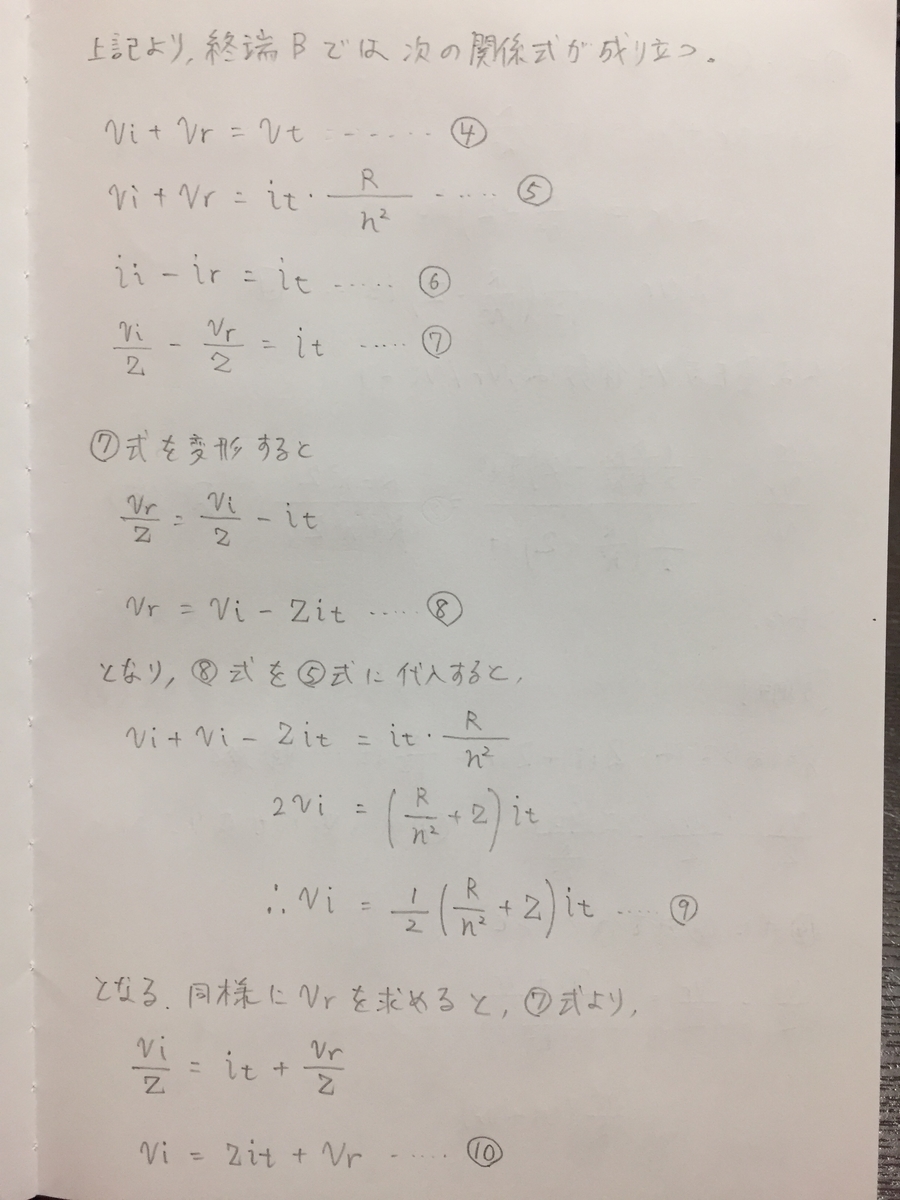 上記より,終端Bでは次の関係式が成り立つ.
Vi + Vr = Vt ‥‥‥ ④
Vi + Vr = it · R/n² ‥‥‥ ⑤
ii − ir = it ‥‥‥ ⑥
Vi/Z − Vr/Z = it ‥‥‥ ⑦
⑦式を変形すると
Vr/Z = Vi/Z − it
Vr = Vi − Zit ‥‥‥ ⑧
となり, ⑧式を⑤式に代入すると,
Vi + Vi − Zit = it · R/n²
2Vi = (R/n² + Z) it
∴ Vi = 1/2 (R/n² + Z) it ‥‥‥ ⑨
となる. 同様にVrを求めると, ⑦式より,
Vi/Z = it + Vr/Z
Vi = Zit + Vr ‥‥‥ ⑩